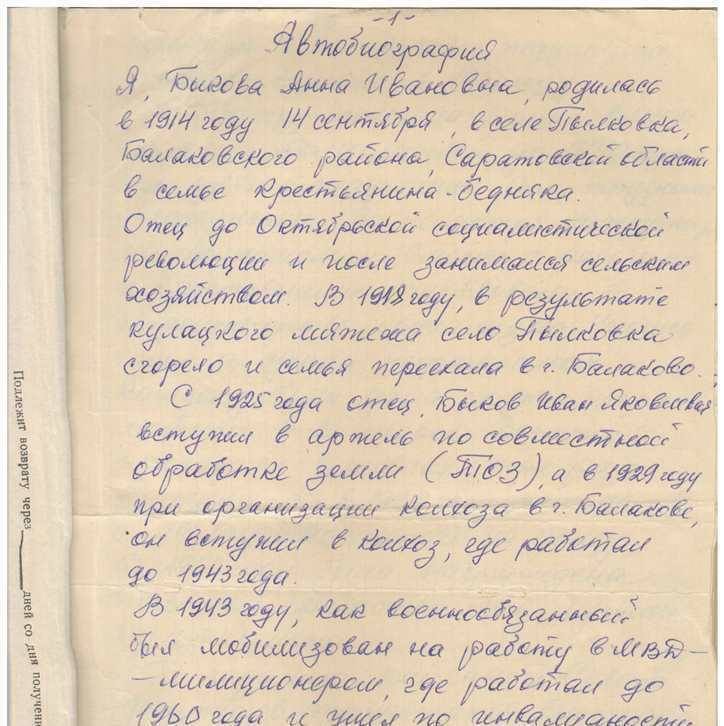 -1-
Автобиография
Я, Быкова Анна Ивановна, родилась
в 1914 году 14 сентября, в селе Пылковка,
Балаковского района, Саратовской области
в семье крестьянина-бедняка.
Отец до Октябрьской социалистической
революции и после занимался сельским
хозяйством. В 1918 году, в результате
кулацкого мятежа село Пылковка
сгорело и семья переехала в г. Балаково.
С 1925 года отец, Быков Иван Яковлевич
вступил в артель по совместной
обработке земли (ТОЗ), а в 1929 году
при организации колхоза в г. Балакове,
он вступил в колхоз, где работал
до 1943 года.
В 1943 году, как военнообязанный
был мобилизован на работу в МВД-
-милиционером, где работал до
1960 года и ушел по инвалидности
Подлежит возврату через
дней со дня получени